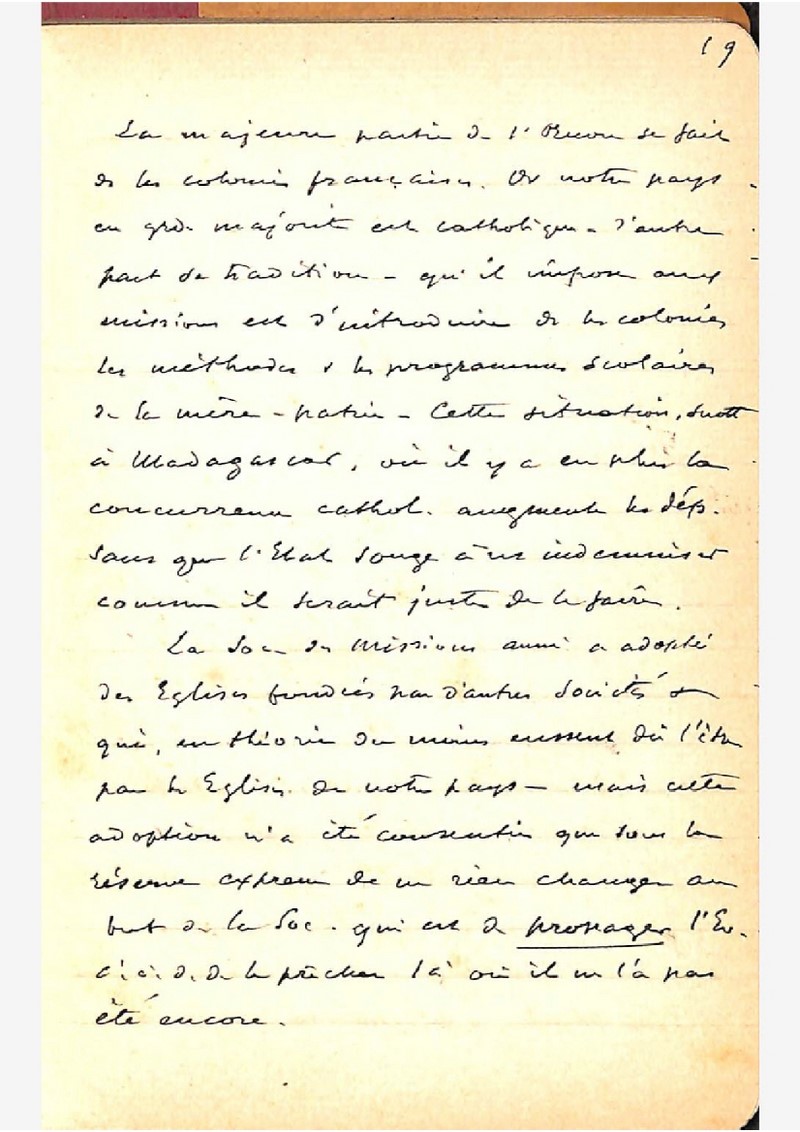 19
La majeure partie de l'Œuvre se fait
ds les colonies françaises. Or notre pays
en grde majorité est catholique - D'autre
part sa tradition - qu'il impose aux
missions est d'introduire ds les colonies
les méthodes & les programmes scolaires
de la mère-patrie - Cette situation, surtt
à Madagascar, où il y a en plus la
concurrence cathol. augmente les dép.
sans que l'Etat songe à ns indemniser
comme il serait juste de le faire.
La Soc. des Missions aussi a adopté
des Eglises fondées par d'autres Sociétés &
qui, en théorie du moins eussent dû l'être
par les Eglises de notre pays - mais cette
adoption n'a été consentie que sous la
réserve expresse de ne rien changer au
but de la Soc. qui est de propager l'Ev.
c.à.d. de le prêcher là où il ne l'a pas
été encore.